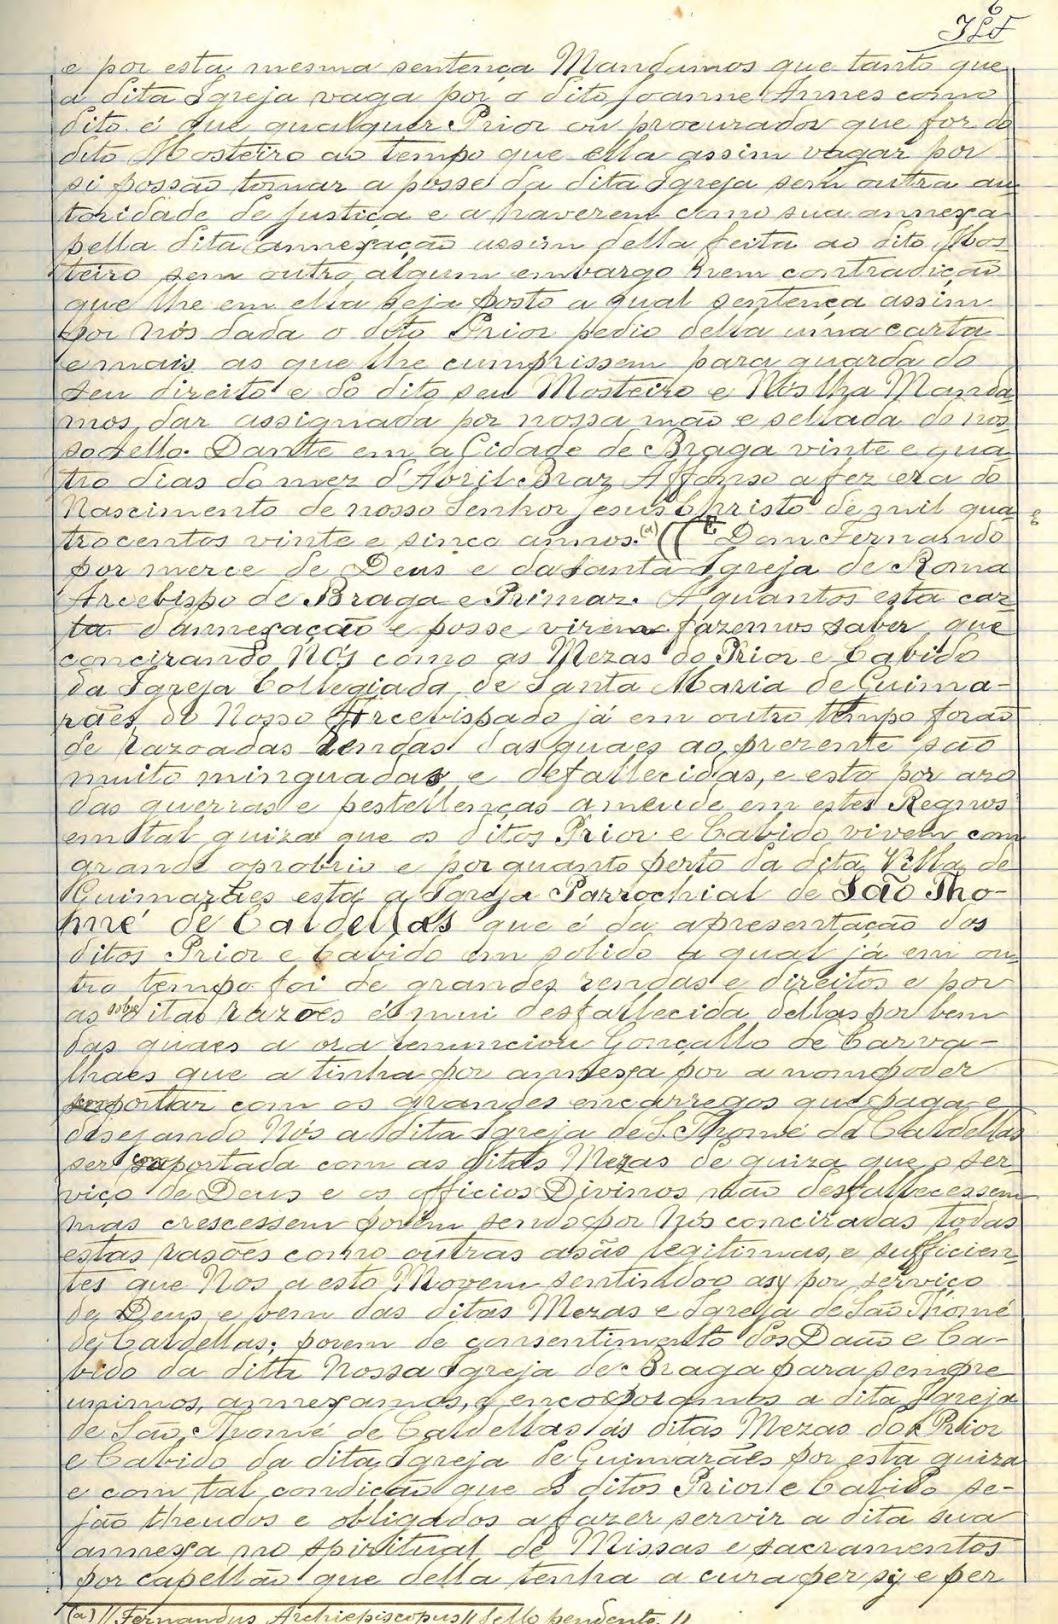 6
JLF
e por esta mesma sentença Mandamos que tanto que
a dita Igreja vaga por o dito Joanne Annes como
dito é que qualquer Prior ou procurador que for do
dito Mosteiro ao tempo que ella assim vagar por
si possão tomar a posse da dita Igreja sem outra au-
toridade de justiça e a haverem como sua annexa
pella dita annexação assim della feita ao dito Mos-
teiro sem outro algum embargo nem contradição
que lhe em ella seja posto a qual sentença assim
por nós dada o dito Prior pedio della uma carta
e mais as que lhe cumprissem para guarda do
seu direito e do dito seu Mosteiro e Nós lha Manda
mos dar assignada por nossa mão e sellada do nos
so sello. Dante em a Cidade de Braga vinte e qua
tro dias do mez d'Abril Braz Affonso a fez era do
Nascimento de nosso Senhor Jesus Christo de mil qua
trocentos vinte e sinco annos. (a) (( E Dom Fernando
por merce de Deus e da Santa Igreja de Roma
Arcebispo de Braga e Primaz. A quantos esta car-
ta d'annexação e posse virem fazemos saber que
concirando NÓS como as Mezas do Prior e Cabido
da Igreja Collegiada de Santa Maria de Guima-
rães do Nosso Arcebispado já em outro tempo forão
de razoadas rendas das quaes ao prezente são
muito minguadas e defallecidas, e esto por azo
das guerras e pestellenças ameude em estes Regnos
em tal guiza que os ditos Prior e Cabido vivem com
grande oprobrio e porquanto perto da dita Villa de
Guimarães está a Igreja Parrochial de São Tho-
mé de Caldellas que é da apresentação dos
ditos Prior e Cabido em solido a qual já em ou
tro tempo foi de grandes rendas e direitos e por
as sobreditas razões é mui desfallecida dellas por bem
das quaes a ora renunciou Gonçallo de Carva-
lhaes que a tinha por annexa por a nom poder
soportar com os grandes encarregos que paga e
desejando Nós a dita Igreja de S. Thomé de Caldellas
ser comportada com as ditas Mezas de guiza que o ser-
viço de Deus e os officios Divinos não desfallecessem
mas crescessem porem sendo por Nós conciradas todas
estas rasões como outras asás legitimas, e sufficien-
tes que Nos a esto Movem sentindoo asy por serviço
de Deus e bem das ditas Mezas e Igreja de São Thomé
de Caldellas; porem de consentimento dos Daão e Ca-
bido da ditta Nossa Igreja de Braga para sempre
unimos, annexamos, e encorporamos a dita Igreja
de São Thomé de Caldellas ás ditas Mezas do Prior
e Cabido da dita Igreja de Guimarães por esta guiza
e com tal condição que os ditos Prior e Cabido se-
jão theudos e obligados a fazer servir a dita sua
annexa no spiritual de Missas e sacramentos
por capellão que della tenha a cura per sy e per
(a) // Fernandus Archiepiscopus // Sello pendente //